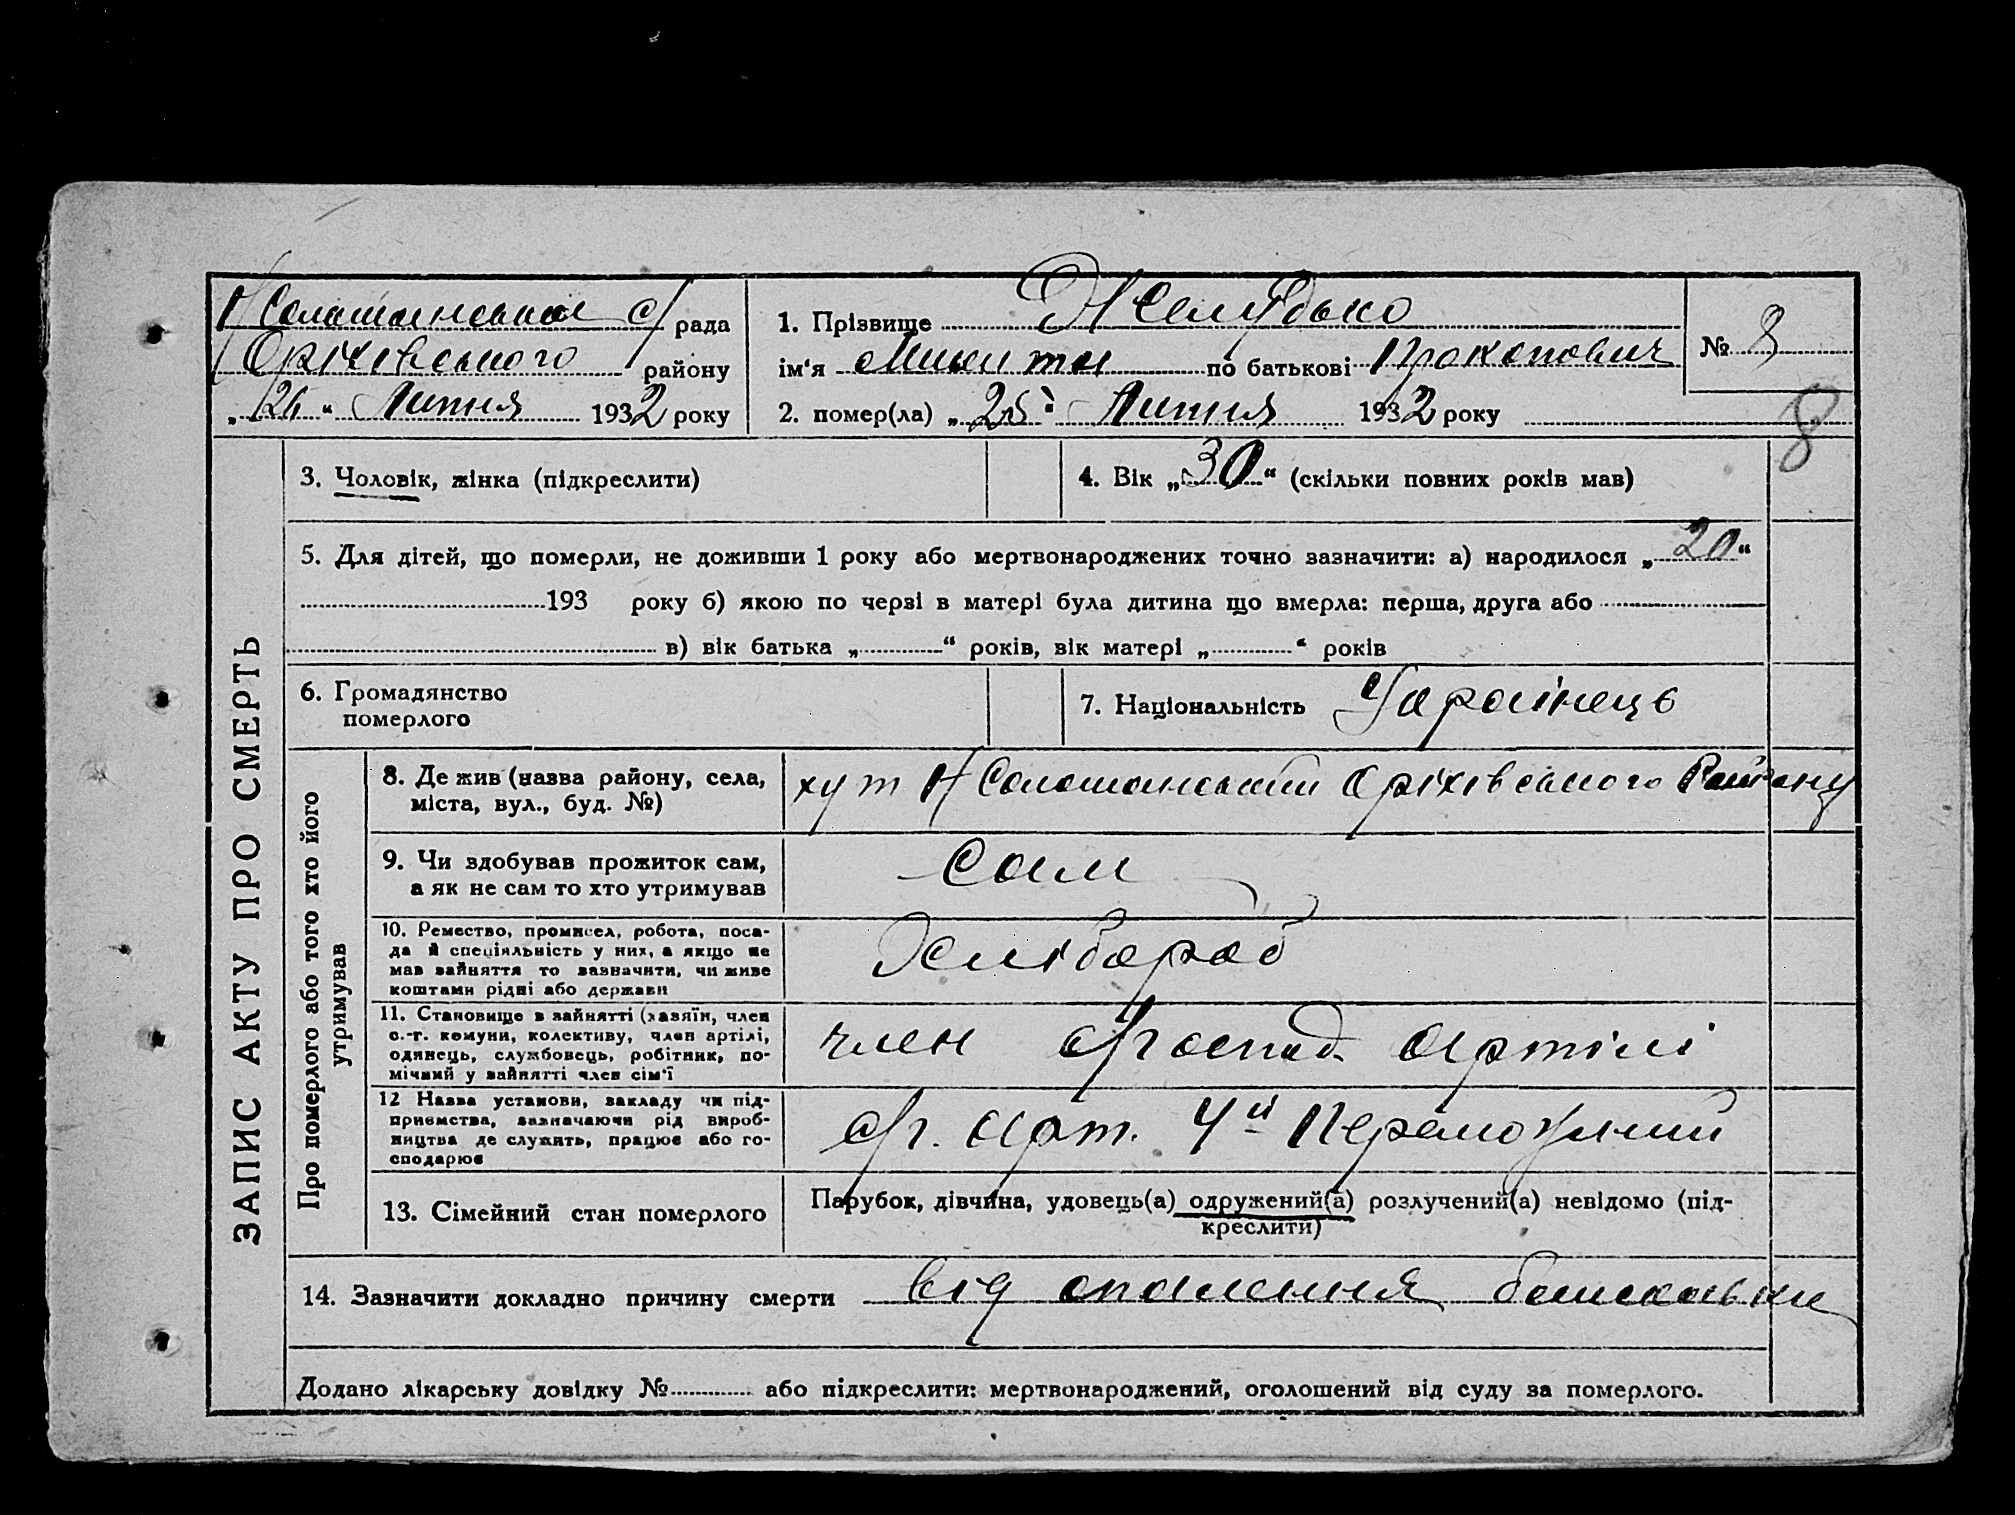 Н Солошанська с/рада
Оріхівського району
„26“ Липня 1932 року
1. Прізвище Желудько
ім'я Микита по батькові Прокопович
№ 8
2. помер(ла) „25“ Липня 1932 року
8
ЗАПИС АКТУ ПРО СМЕРТЬ
3. Чоловік, жінка (підкреслити)
4. Вік „30“ (скільки повних років мав)
5. Для дітей, що померли, не доживши 1 року або мертвонароджених точно зазначити: а) народилося „20“
193 року б) якою по черзі в матері була дитина що вмерла: перша, друга або
в) вік батька „ “ років, вік матері „ “ років
6. Громадянство
померлого
7. Національність Українець
Про померлого або того хто його
утримував
8. Де жив (назва району, села,
міста, вул., буд. №)
хут Н Солошанський Оріхівського Району
9. Чи здобував прожиток сам,
а як не сам то хто утримував
Сам
10. Ремество, промисел, робота, поса-
да й спеціяльність у них, а якщо не
мав зайняття то зазначити, чи живе
коштами рідні або держави
Хлібороб
11. Становище в зайнятті (хазяїн, член
с.-г. комуни, колективу, член артілі,
одинець, службовець, робітник, по-
мічний у зайнятті член сім'ї
член с/господ. артілі
12 Назва установи, закладу чи під-
приємства, зазначаючи рід вироб-
ництва де служить, працює або го-
сподарює
с/г. арт. 4й Переможний
13. Сімейний стан померлого
Парубок, дівчина, удовець(а) одружений(а) розлучений(а) невідомо (під-
креслити)
14. Зазначити докладно причину смерти від опалення
Додано лікарську довідку № або підкреслити: мертвонароджений, оголошений від суду за померлого.